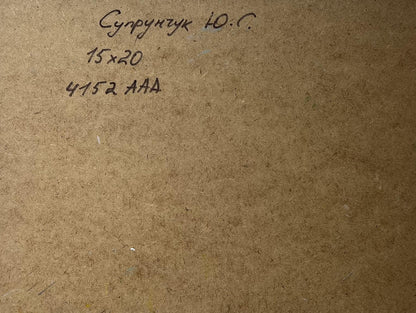 Супрунчук Ю.С.
15х20
4152 ААА